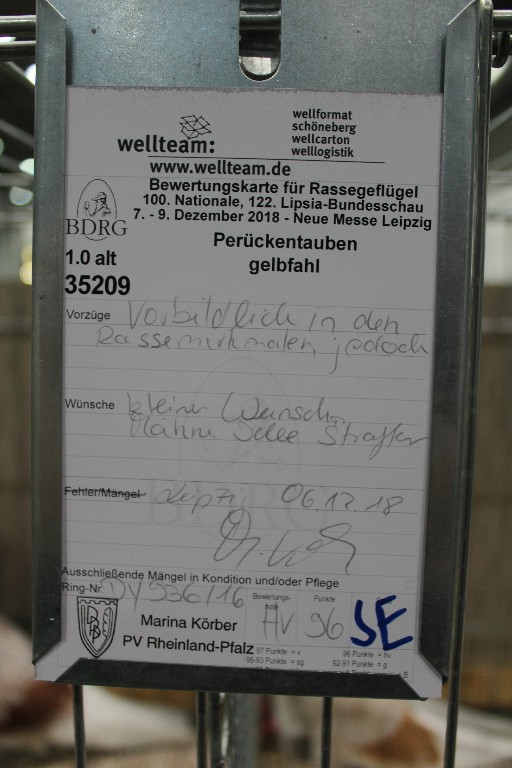 wellteam:
wellformat
schöneberg
wellcarton
welllogistik
www.wellteam.de
BDRG
Bewertungskarte für Rassegeflügel
100. Nationale, 122. Lipsia-Bundesschau
7. - 9. Dezember 2018 - Neue Messe Leipzig
Perückentauben
gelbfahl
1.0 alt
35209
Vorzüge Vorbildlich in den
Rassemerkmalen, jedoch
Wünsche kleiner Wunsch,
Mähne Idee Straffer
Fehler/Mängel Leipzig 06.12.18
BDRG
Ausschließende Mängel in Kondition und/oder Pflege
Ring-Nr. DY 936/16
Marina Körber
PV Rheinland-Pfalz
Bewertungs-
note
HV
Punkte
96
SE
97 Punkte = v
96 Punkte = hv
95-93 Punkte = sg
92-91 Punkte = g